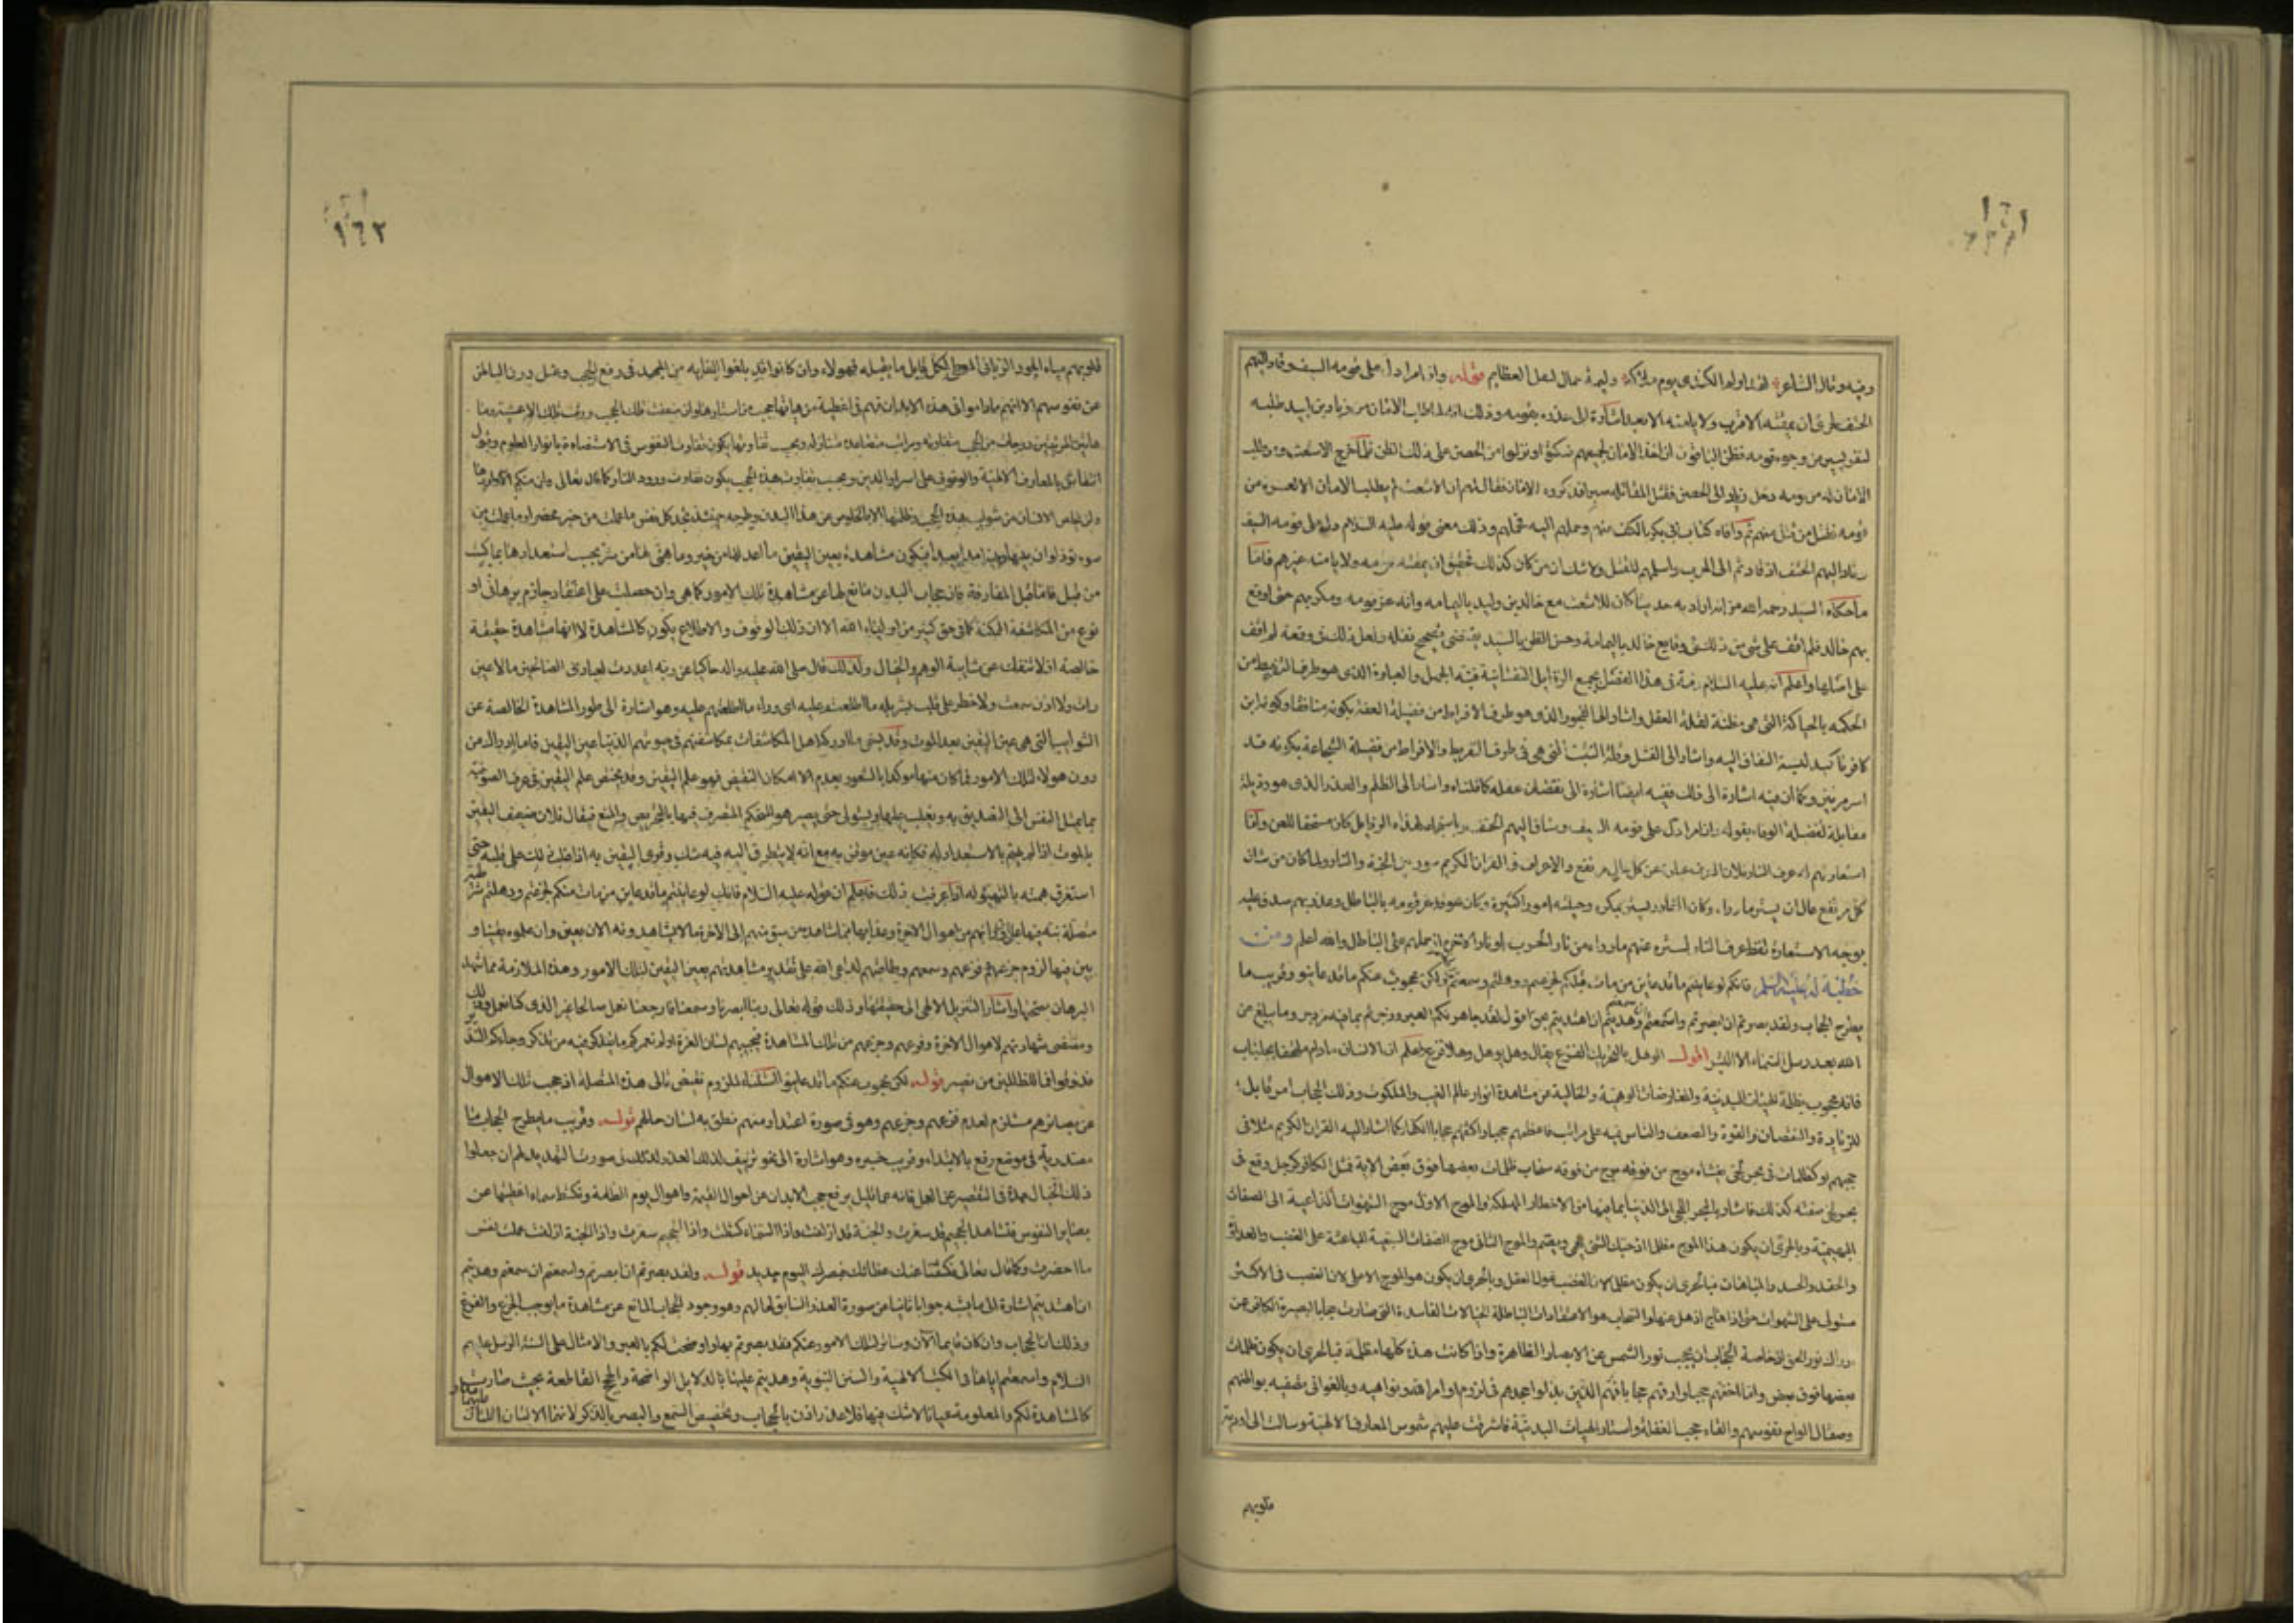 ١٦١
وفيه وقال الشاعر لقد اولم الكندي يوم ملاكه وليمة حمال لعقل العظايم قوله وان امرأ دل على قومه السيف وقاد اليهم
الحتف لحري ان يمقته الاقرب ولا يامنه الابعد اشارة الى غدره بقومه وذلك انه لما طلب الامان من زياد بن لبيد طلبه
لنفر يسير من وجوه قومه فظن الباقون انه اخذ الامان لجميعهم فسكتوا ونزلوا من الحصن على ذلك الظن فلما خرج الاشعث ومن طلب
الامان له من قومه دخل زياد الى الحصن فقتل المقاتلة صبرا فذكروه الامان فقال لهم ان الاشعث لم يطلب الامان الا لعشرة من
قومه فقتل من قتل منهم ثم وافاه كتاب ابي بكر بالكف عنهم وحملهم اليه فحملهم وذلك معنى قوله عليه السلام دل على قومه السيف
وقاد اليهم الحتف اذ قادهم الى الحرب واسلمهم للقتل ولا شك ان من كان كذلك فحقيق ان يمقته قومه ولا يامنه غيرهم فاما
ما حكاه السيد رحمه الله من انه اراد به حديثا كان للاشعث مع خالد بن وليد باليمامة وانه غر قومه ومكر بهم حتى اوقع
بهم خالد فلم اقف على شي من ذلك في وقايع خالد باليمامة وحسن الظن بالسيد يقتضي تصحيح نقله ولعل ذلك في وقعة لم اقف
على اصلها واعلم انه عليه السلام ذمه في هذا الفصل بجميع الرذايل النفسانية فنبه الجهل والغباوة الذي هو طرف التفريط من
الحكمة بالحياكة التي هي مظنة لقلة العقل واشار الى الفجور الذي هو طرف الافراط من فضيلة العفة بكونه منافقا وكونه ابن
كافر تاكيد لنسبة النفاق اليه واشار الى الفشل وقلة التثبت التي هي في طرف التفريط والافراط من فضيلة الشجاعة بكونه قد
اسر مرتين وكما ان فيه اشارة الى ذلك ففيه ايضا اشارة الى نقصان عقله كما قلناه واشار الى الظلم والغدر الذي هو رذيلة
مقابلة لفضيلة الوفاء بقوله وان امرأ دل على قومه السيف وساق اليهم الحتف وباستجماعه لهذه الرذايل كان مستحقا للعن واما
استعارتهم له عرف النار فلان العرف عبارة عن كل عال مرتفع والاعراف في القران الكريم سور بين الجنة والنار ولما كان من شان
كل مرتفع عال ان يستر ما وراه وكان الغادر يستر بمكره وحيلته امورا كثيرة وكان هو قد غر قومه بالباطل وغدر بهم صدق عليه
بوجه الاستعارة لفظ عرف النار لستره عنهم ما وراءه من نار الحرب او نار الاخرة اذ حملهم على الباطل والله اعلم ومن
خطبة له عليه السلم فانكم لو عاينتم ما قد عاين من مات قبلكم لجزعتم ووهلتم وسمعتم واطعتم ولكن محجوب عنكم ما قد عاينو وقريب ما
يطرح الحجاب ولقد بصرتم ان ابصرتم واسمعتم ان سمعتم وهديتم ان اهتديتم بحق اقول لقد جاهرتكم العبر وزجرتم بما فيه مزدجر وما يبلغ عن
الله بعد رسل السماء الا البشر اقول الوهل بالتحريك الفزع يقال وهل يوهل وهلا فزع واعلم ان الانسان مادام ملتحفا بجلباب
فانه محجوب بظلمة الهيئات البدنية والمعارضات الوهمية والخيالية عن مشاهدة انوار عالم الغيب والملكوت وذلك الحجاب امر قابل
للزيادة والنقصان والقوة والضعف والناس فيه على مراتب فاعظمهم حجبا واكثفهم حجابا الكفار كما اشار اليه القران الكريم مثلا في
حجبهم او كظلمات في بحر لجي يغشاه موج من فوقه موج من فوقه سحاب ظلمات بعضها فوق بعض الاية فمثل الكافر كرجل وقع في
بحر لجي صفته كذلك فاشار بالبحر اللجي الى الدنيا بما فيها من الاخطار المهلكة والموج الاول موج الشهوات الداعية الى الصفات
البهيمية وبالحري ان يكون هذا الموج مظلما اذ حبك الشي يعمي ويصم والموج الثاني موج الصفات السبعية الباعثة على الغضب والعداوة
والحقد والحسد والمباهات فبالحري ان يكون مظلما لان الغضب غول العقل وبالحري ان يكون هو الموج الاعلى لان الغضب في الاكثر
مستولى على الشهوات حتى اذا هاج اذهل عنها والسحاب هو الاعتقادات الباطلة الخيالات الفاسدة التي صارت حجابا لبصيرة الكافر عن
ادراك نور الحق اذ خاصة الحجاب ان يحجب نور الشمس عن الابصار الظاهرة واذا كانت هذه كلها مظلمة فبالحري ان يكون ظلمات
بعضها فوق بعض واما اخفهم حجبا وارقهم حجابا فهم الذين بذلوا جهدهم في لزوم اوامر الله ونواهيه وبالغوا في تصفيه بواطنهم
وصقال الواح نفوسهم والقاء حجب الغفلة واستار الهيات البدنية فاشرقت عليهم شموس المعارف الالهية وسالت الى اودية
قلوبهم
١٦٢
قلوبهم مياه الجود الرباني المعطي لكل قابل ما يقبله فهولاء وان كانوا قد بلغوا الغاية من الجهد في رفع الحجب وغسل درن الباطن
عن نفوسهم الا انهم ماداموا في هذه الابدان فهم في اغطية من هياتها وحجب من استارها وان ضعفت تلك الحجب ورقت تلك الاغشية وما
هاتين المرتبتين درجات من الحجب متفاوته ومراتب متصاعدة متنازلة وبحسب تفاوتها يكون تفاوت النفوس في الاستضاءة بانوار العلوم وقبول
انتقاش بالمعارف الالهية والوقوف على اسرار الدين وبحسب تفاوت هذه الحجب يكون تفاوت ورود النار كما قال تعالى وان منكم الا واردها
ولن يخلص الانسان من شوايب هذه الحجب وظلمتها الا بالخلوص من هذا البدن وطرحه حينئذ تجد كل نفس ما عملت من خير محضرا وما عملت من
سوء تود لو ان بينها وبينه امدا بعيدا فيكون مشاهدة بعين اليقين ما اعد لها من خير وما هيئ لها من شر بحسب استعدادها بما كسبت
من قبل فاما قبل المفارقة فان حجاب البدن مانع لها عن مشاهدة تلك الامور كما هي وان حصلت على اعتقاد جازم برهاني او
نوع من المكاشفة الممكنة كما في حق كثير من اولياء الله الا ان ذلك الوقوف والاطلاع يكون كالمشاهدة لا انها مشاهدة حقيقة
خالصة اذ لا تنفك عن شايبة الوهم والخيال ولذلك قال صلى الله عليه واله حاكيا عن ربه اعددت لعبادي الصالحين ما لا عين
رات ولا اذن سمعت ولا خطر على قلب بشر بله ما اطلعتم عليه اي وراء ما اطلعتهم عليه وهو اشارة الى طور المشاهدة الخالصة عن
الشوايب التي هي عين اليقين بعد الموت وقد يسمى ما ادركه اهل المكاشفات بمكاشفتهم في حيوتهم الدنيا عين اليقين فاما ادراك من
دون هولاء لتلك الامور فما كان منها موكدا بالشعور بعدم الامكان النقيض فهو علم اليقين وقد يختص علم اليقين في عرف الصوفية
بما يميل النفس الى التصديق به ويغلب عليها ويستولي حتى يصير هو المتحكم المتصرف فيها بالتحريص والمنع فيقال فلان ضعيف اليقين
بالموت اذا لم يهتم بالاستعداد له فكانه غير موقن به مع انه لا يتطرق اليه فيه شك وقوي اليقين به اذا غلب ذلك على قلبه حتى
استغرق همته بالتهيئة له اذا عرفت ذلك فاعلم ان قوله عليه السلام فانكم لو عاينتم ما قد عاين من مات منكم لجزعتم ووهلتم شرطية
متصلة نبه فيها على ان ورائهم من اهوال الاخرة وعذابها مما شاهده من سبق منهم الى الاخرة ما لا يشاهدونه الان بعين وان علموه يقينا و
بين فيها لزوم جزعهم وفزعهم وسمعهم وطاعتهم لداعي الله على تقدير مشاهدتهم بعين اليقين لتلك الامور وهذه الملازمة مما شهد
البرهان بصحتها واشار التنزيل الالهي الى حقيقتها وذلك قوله تعالى ربنا ابصرنا وسمعنا فارجعنا نعمل صالحا غير الذي كنا نعمل وذلك
ومقتضى شهادتهم لاهوال الاخرة وفزعهم وجزعهم من تلك المشاهدة فيجيبهم لسان العزة اولم نعمركم ما يتذكر فيه من تذكر وجاءكم النذير
فذوقوا فما للظالمين من نصير قوله لكن محجوب عنكم ما قد عاينو استثناء للزوم نقيض تالى هذه المتصلة اذ حجب تلك الاهوال
عن بصائرهم مستلزم لعدم فزعهم وجزعهم وهو في صورة اعتذار منهم نطق به لسان حالهم قوله وقريب ما يطرح الحجاب ما
مصدرية في موضع رفع بالابتداء وقريب خبره وهو اشارة الى نحو تزييف لذلك العذر ولذلك في صورة التهديد لهم ان جعلوا
ذلك الخيال عمدة في التقصير عن العمل فانه عما قليل يرفع حجب الابدان عن احوال القيمة واهوال يوم الطامة وتكشط سماء اغطيتها عن
بصاير النفوس فتشاهد الجحيم قد سعرت والجنة قد ازلفت واذا السماء كشطت واذا الجحيم سعرت واذا الجنة ازلفت علمت نفس
ما احضرت وكما قال تعالى فكشفنا عنك غطائك فبصرك اليوم حديد قوله ولقد بصرتم ان ابصرتم واسمعتم ان سمعتم وهديتم
ان اهتديتم اشارة الى ما يشبه جوابا ثانيا عن صورة العذر السابق لحالهم وهو وجود الحجاب المانع عن مشاهدة ما يوجب الجزع والفزع
وذلك ان الحجاب وان كان قايما الآن وساترا لتلك الامور عنكم فقد بصرتم بها واوضحت لكم بالعبر والامثال على السنة الرسل عليهم
السلام واسمعتم اياها في الكتب الالهية والسنن النبوية وهديتم عليها بالدلايل الواضحة والحجج القاطعة بحيث صارت
كالمشاهدة لكم والمعلومة عيانا لا شك فيها فلا عذر اذن بالحجاب وتخصيص السمع والبصر بالذكر لانهما الالتان اللتان عليهما